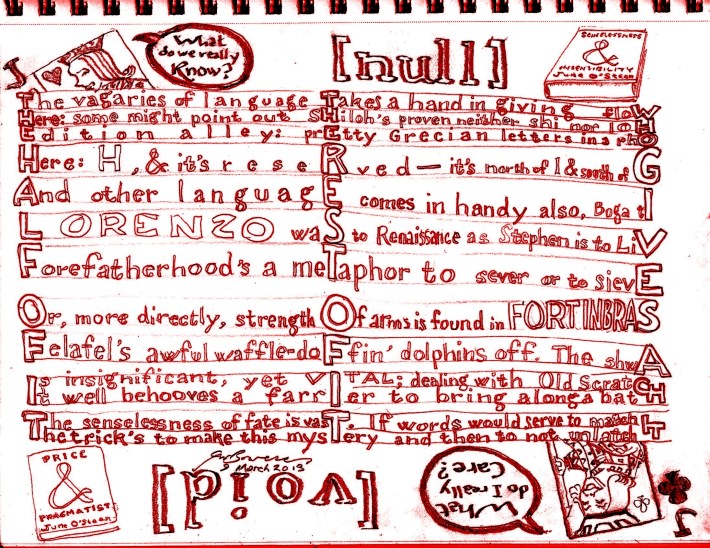 J
What do we really Know?
[null]
SENSELESSNESS & INSENSIBILITY June O'Steen
The vagaries of language Takes a hand in giving flow
Here: some might point out Shiloh's proven neither shi nor loh
Edition alley: pretty Grecian letters in a pho
Here: H, & it's reserved — it's north of I & south of G
And other language comes in handy also, Boga tI
LORENZO was to Renaissance as Stephen is to LiV
Forefatherhood's a meTaphor to sever or to sievE
Or, more directly, strength Of arms is found in FORTINBRAS
Felafel's awful waffle-doffin' dolphins off. The shwA
Is insignificant, yet vITAL; dealing with Old Scratch
It well behooves a farrier to bring along a bat
The senselessness of fate is vasT. If words would serve to match IT
The trick's to make this mysTery and then to not unlatch
PRICE & PRAGMATIST June O'Steen
9 March 2013
[void]
What do I really Care?
J